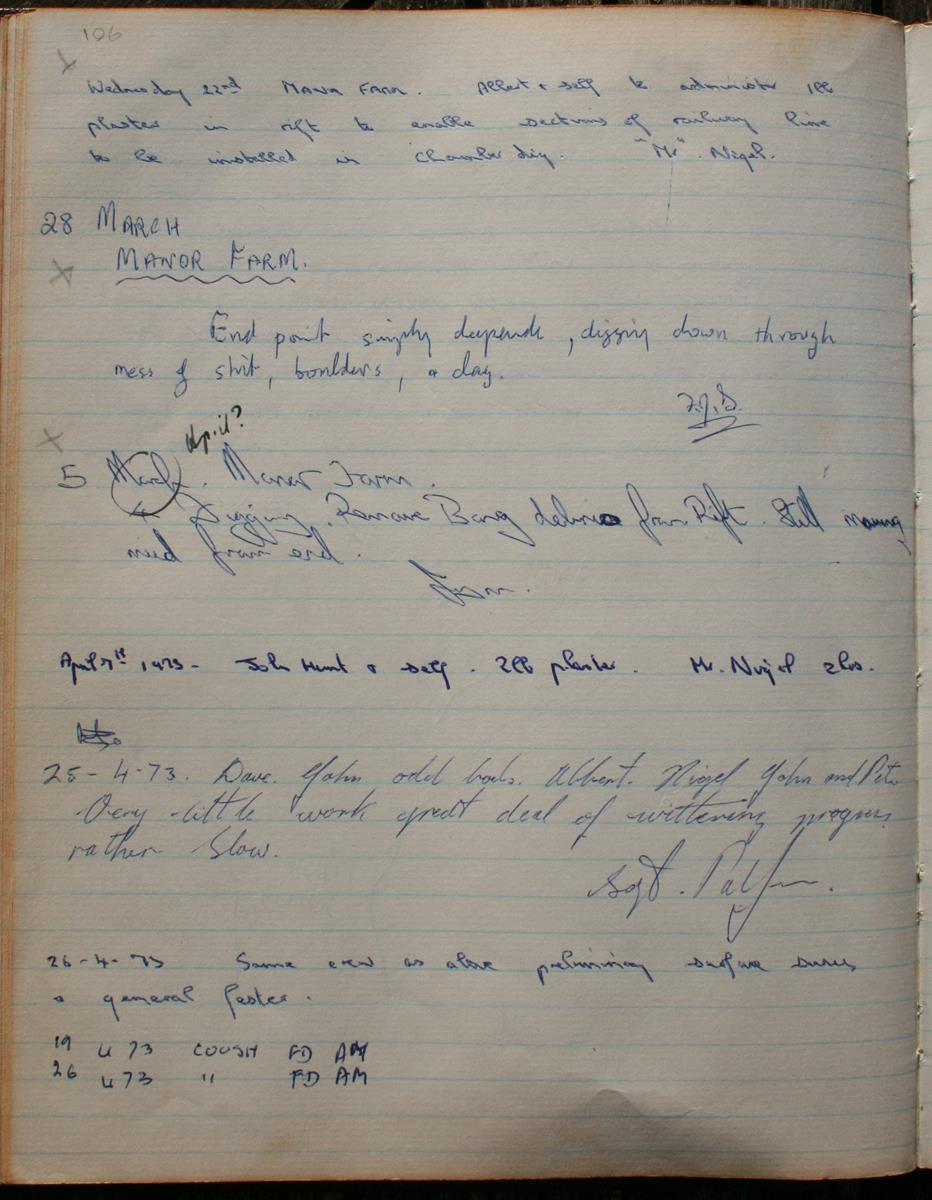 106
Wednesday 22nd Manor Farm. Albert & self to administer 1lb
plaster in rift to enable sections of railway line
to be installed in chamber dig. "Mr". Nigel.
28 MARCH
MANOR FARM.
End point simply deepends, digging down through
mess of shit, boulders, & clay.
April?
5 March. Manor Farm.
Digging. Remove Bang debris from Rift. Still moving
mud from end.
April 7th 1973 - John Hunt & self. 2lb plaster. Mr. Nigel 2hrs.
25-4-73. Dave. John odd bods. Albert. Nigel John and Pete
Very little work great deal of wittering progress
rather slow.
Sgt.
26-4-73 Same crew as above preliminary surface survey
& general fester.
19 4 73 COUSH FD AM
26 4 73 " FD AM